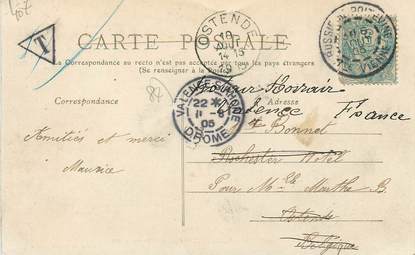 407
T
OSTENDE
CARTE POSTALE
La Correspondance au recto n'est pas acceptée par tous les pays étrangers
(Se renseigner à la Poste.)
BUSSIERE POITEVINE
VIENNE
Correspondance
87
Adresse
Valence France
VALENCE-S-RHONE
22
11-8
05
DROME
Bonnet
Rochester Hôtel
Amitiés et merci
Maurice
Pour Mlle Marthe B.
Ostende
Belgique